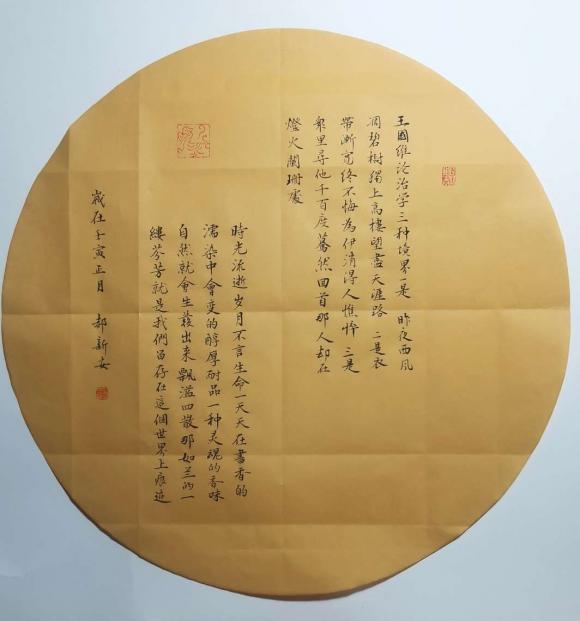 王國維论治学三种境界一是 昨夜西风
凋碧樹獨上高樓望盡天涯路 二是衣
帶漸宽终不悔為伊消得人憔悴 三是
衆里尋他千百度蓦然回首那人却在
燈火闌珊處
時光流逝岁月不言生命一天天在書香的
濡染中會变的醇厚耐品一种灵魂的香味
自然就會生發出来飘濫四散那如兰的一
縷芬芳就是我們留存在這個世界上痕迹
歲在壬寅正月 郝新安